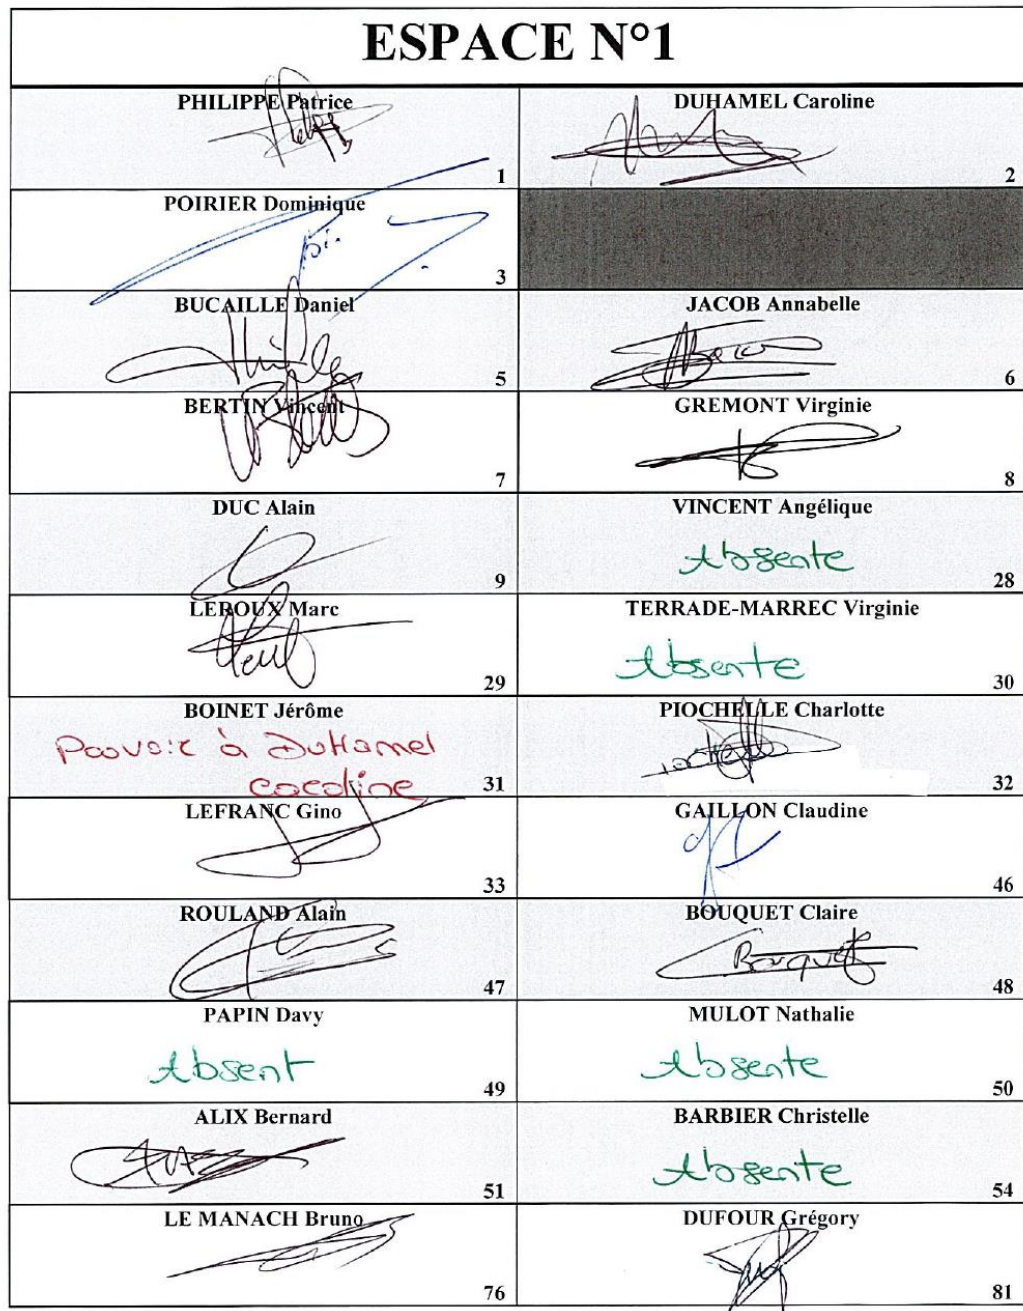 ESPACE N°1
PHILIPPE Patrice
1
DUHAMEL Caroline
2
POIRIER Dominique
3
BUCAILLE Daniel
5
JACOB Annabelle
6
BERTIN Vincent
7
GREMONT Virginie
8
DUC Alain
9
VINCENT Angélique
Absente
28
LEROUX Marc
29
TERRADE-MARREC Virginie
Absente
30
BOINET Jérôme
Pouvoir à DuHamel
Caroline
31
PIOCHELLE Charlotte
32
LEFRANC Gino
33
GAILLON Claudine
46
ROULAND Alain
47
BOUQUET Claire
Bouquet
48
PAPIN Davy
Absent
49
MULOT Nathalie
Absente
50
ALIX Bernard
51
BARBIER Christelle
Absente
54
LE MANACH Bruno
76
DUFOUR Grégory
81